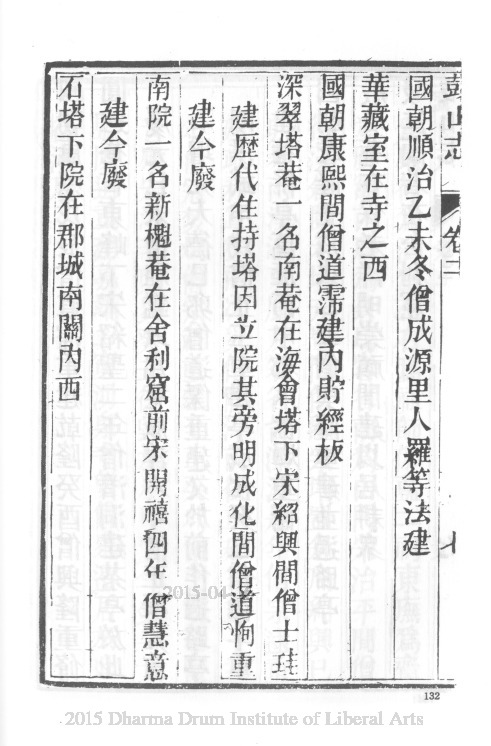 鼓山志 卷二 七
國朝順治乙未冬僧成源里人羅等法建
華藏室在寺之西
國朝康熙間僧道霈建內貯經板
深翠塔菴一名南菴在海會塔下宋紹興間僧士珪
建歷代住持塔因立院其旁明成化間僧道恂重
建今廢
南院一名新㮯菴在舍利窟前宋開禧四年僧慧意
建今廢
石塔下院在郡城南關內西
132
2015-04-
2015 Dharma Drum Institute of Liberal Arts